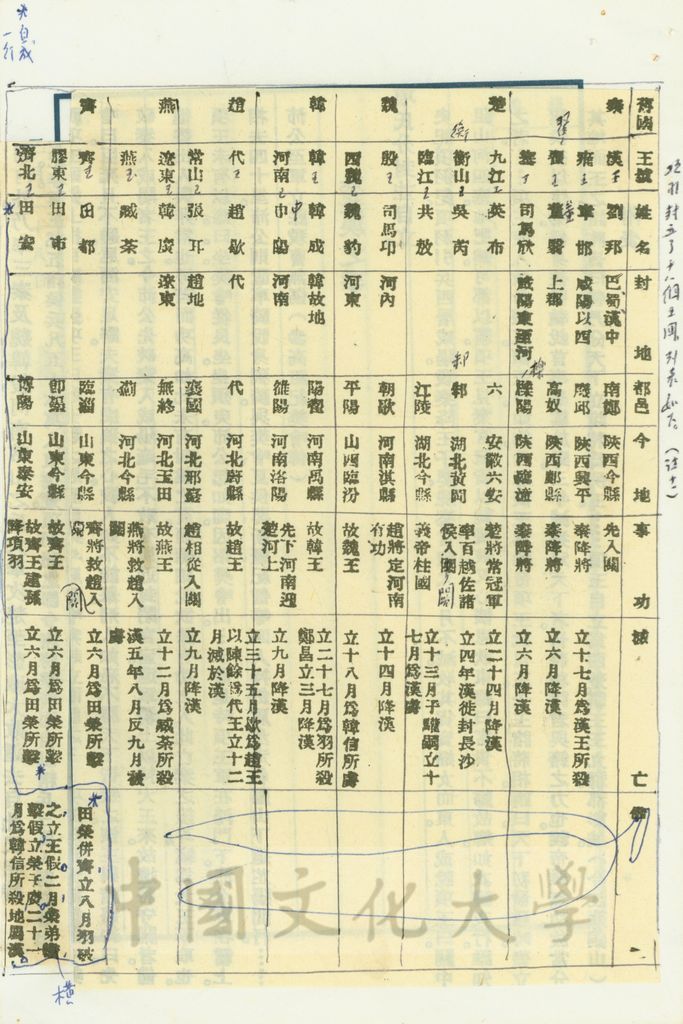 項羽封立了十八個王國列表如下。(註十一)
舊國 王號 姓名 封地 都邑 今地 事功 滅亡 備
秦 漢王 劉邦 巴蜀漢中 南鄭 陝西今縣 先入關
雍王 章邯 咸陽以西 廢邱 陝西興平 秦降將 立十七月爲漢王所殺
翟王 董翳 上郡 高奴 陝西鄜縣 秦降將 立六月降漢
塞王 司馬欣 咸陽東至河 櫟陽 陝西臨潼 秦降將 立六月降漢
楚 九江王 英布 六 安徽六安 楚將常冠軍 立二十四月降漢
衡山王 吳芮 邾 湖北黃岡 率百越佐諸侯入關 立四年漢徙封長沙
臨江王 共敖 江陵 湖北今縣 義帝柱國 立十三月子驩嗣立十七月爲漢虜
魏 殷王 司馬卬 河內 朝歌 河南淇縣 趙將定河南有功 立十四月降漢
西魏王 魏豹 河東 平陽 山西臨汾 故魏王 立十八月爲韓信所虜
韓 韓王 韓成 韓故地 陽翟 河南禹縣 故韓王 立二十七月爲羽所殺鄭昌立三月降漢
河南王 申陽 河南 雒陽 河南洛陽 先下河南迎楚河上 立九月降漢
趙 代王 趙歇 代 代 河北蔚縣 故趙王 立三十五月歇爲趙王以陳餘爲代王立十二月滅於漢
常山王 張耳 趙地 襄國 河北邢臺 趙相從入關 立九月降漢
燕 遼東王 韓廣 遼東 無終 河北玉田 故燕王 立十二月爲臧荼所殺
燕王 臧荼 薊 河北今縣 燕將救趙入關 漢五年八月反九月被虜
齊 齊王 田都 臨淄 山東今縣 齊將救趙入關 立六月爲田榮所擊
膠東王 田市 卽墨 山東今縣 故齊王 立六月爲田榮所擊
濟北王 田安 博陽 山東泰安 故齊王建孫降項羽 立六月爲田榮所擊
田榮併齊立八月羽破之立王假二月榮弟橫擊假立榮子廣二十一月爲韓信所殺地屬漢
橫
中國文化大學